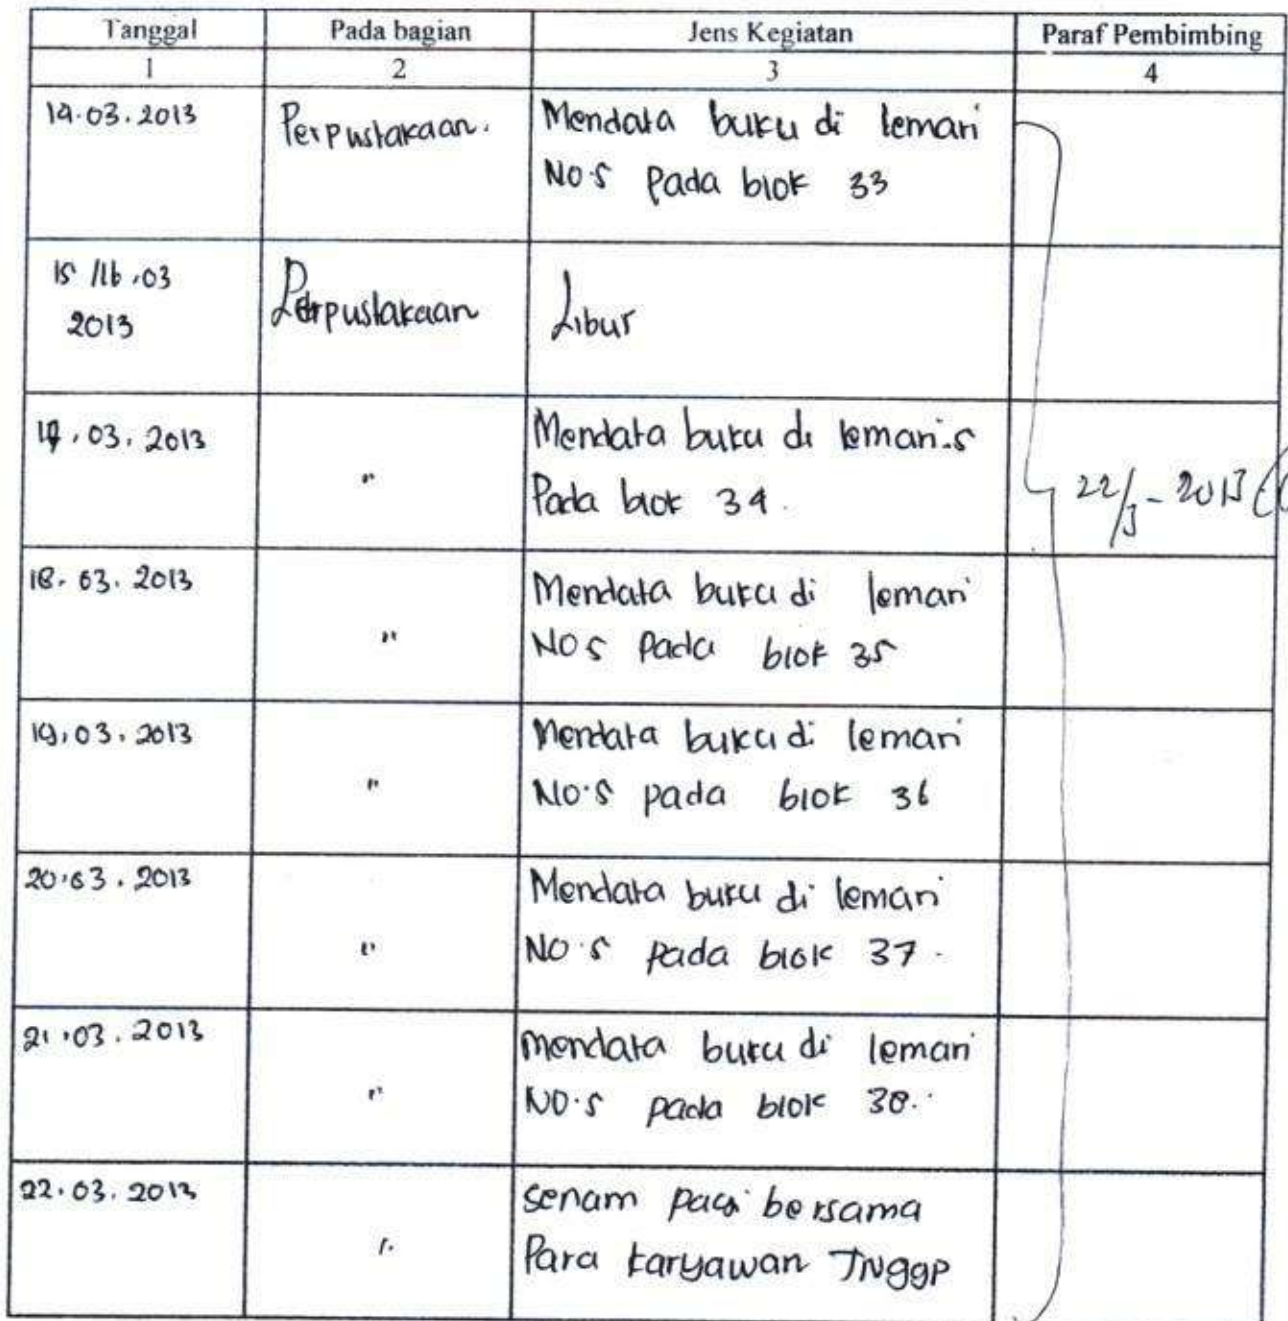 Tanggal Pada bagian Jens Kegiatan Paraf Pembimbing
1 2 3 4
14.03.2013 Perpustakaan. Mendata buku di lemari
NO.5 Pada blok 33
15/16.03 Perpustakaan Libur
2013
17.03.2013 " Mendata buku di lemari.5
Pada blok 34.
22/3-2013
18.03.2013 " Mendata buku di lemari
NO 5 Pada blok 35
19.03.2013 " Mendata buku di lemari
NO.5 pada blok 36
20.03.2013 " Mendata buku di lemari
NO.5 Pada blok 37.
21.03.2013 " mendata buku di lemari
NO.5 pada blok 38.
22.03.2013 " senam pagi bersama
Para karyawan TNggp